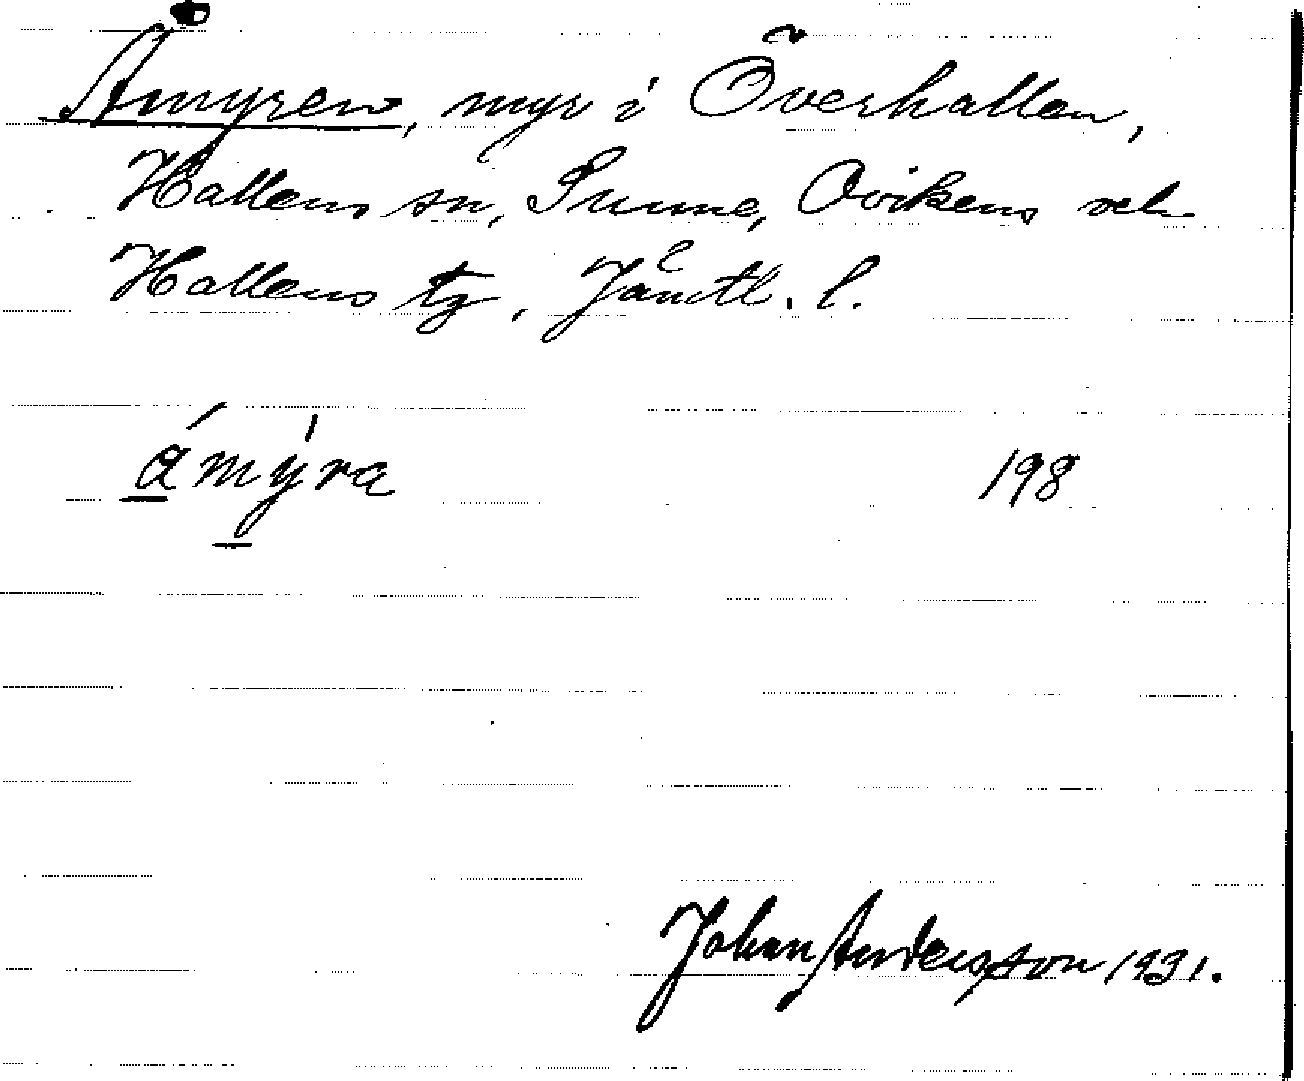 Åmyren, myr i Överhallen,
Hallens sn, Sunne, Ovikens och
Hallens tg, Jämtl. l.
åmýra 198
Johan Andersson 1931.